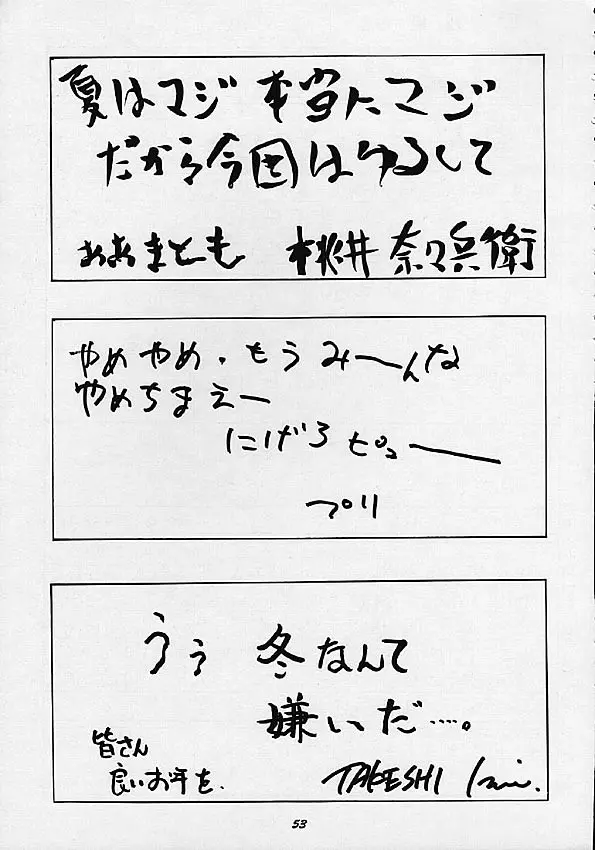 夏はマジ 本当にマジ
だから今回はゆるして
あおまとも 桃井 奈々兵衛
やめやめ、もうみーんな
やめちまえー
にげろ ピューー
プリ
うう 冬なんて
嫌いだ……。
皆さん
良いお年を.
TAKESHI
53